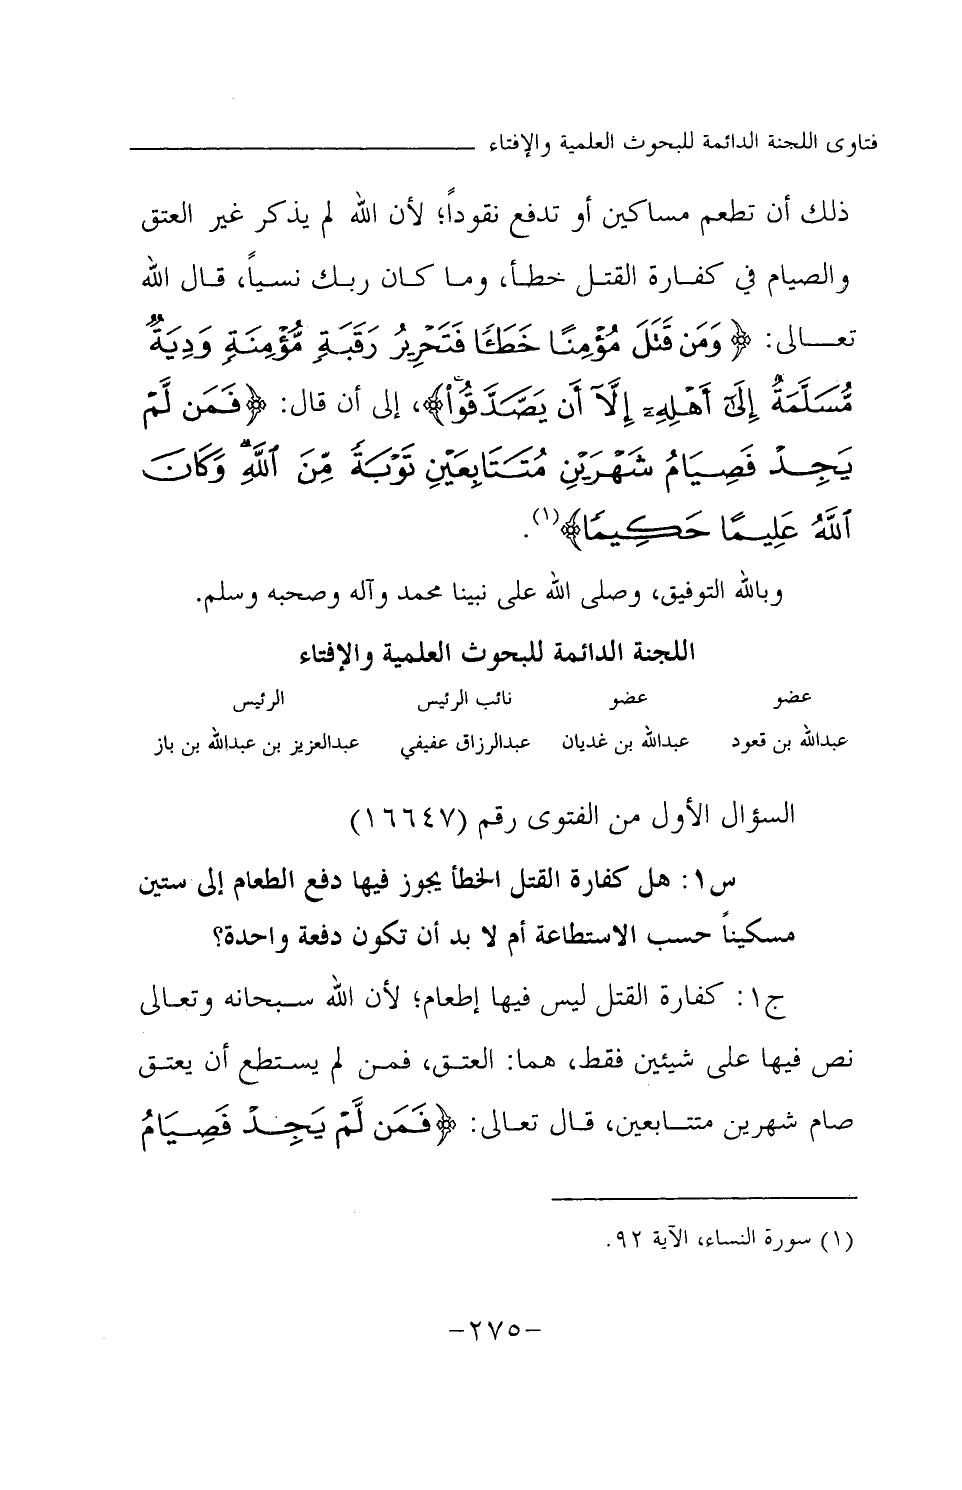 فتاوى اللجنة الدائمة للبحوث العلمية والإفتاء
ذلك أن تطعم مساكين أو تدفع نقوداً؛ لأن الله لم يذكر غير العتق
والصيام في كفارة القتل خطأ، وما كان ربك نسياً، قال الله
تعالى: ﴿وَمَن قَتَلَ مُؤْمِنًا خَطَـًٔا فَتَحْرِيرُ رَقَبَةٍ مُّؤْمِنَةٍ وَدِيَةٌ
مُّسَلَّمَةٌ إِلَىٰٓ أَهْلِهِۦٓ إِلَّآ أَن يَصَّدَّقُوا۟﴾، إلى أن قال: ﴿فَمَن لَّمْ
يَجِدْ فَصِيَامُ شَهْرَيْنِ مُتَتَابِعَيْنِ تَوْبَةً مِّنَ ٱللَّهِ وَكَانَ
ٱللَّهُ عَلِيمًا حَكِيمًا﴾(١).
وبالله التوفيق، وصلى الله على نبينا محمد وآله وصحبه وسلم.
اللجنة الدائمة للبحوث العلمية والإفتاء
عضو عضو نائب الرئيس الرئيس
عبدالله بن قعود عبدالله بن غديان عبدالرزاق عفيفي عبدالعزيز بن عبدالله بن باز
السؤال الأول من الفتوى رقم (١٦٦٤٧)
س١: هل كفارة القتل الخطأ يجوز فيها دفع الطعام إلى ستين
مسكيناً حسب الاستطاعة أم لا بد أن تكون دفعة واحدة؟
ج١: كفارة القتل ليس فيها إطعام؛ لأن الله سبحانه وتعالى
نص فيها على شيئين فقط، هما: العتق، فمن لم يستطع أن يعتق
صام شهرين متتابعين، قال تعالى: ﴿فَمَن لَّمْ يَجِدْ فَصِيَامُ
(١) سورة النساء، الآية ٩٢.
-٢٧٥-